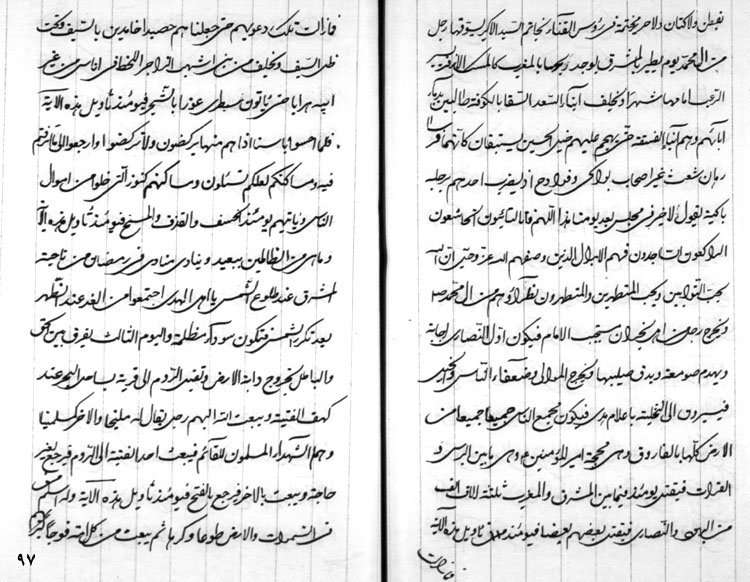 بقطن ولا كتان ولا حرير مختمة في رؤس القناء بخاتم السيد الاكبر يسوقها رجل
من ال محمد يوم يطير بالمشرق يوجد ريحها بالمغرب كالمسك الاذفر يسير
الرعب امامها شهرا ويخلف ابناء السعد السقا بالكوفة طالبين بدماء
ابائهم وهم ابناء الفسقة حتى يهجم عليهم خيل الحسين يستبقان كانهما فرسا
رهان شعث غبر اصحاب بواكي وقوارح اذ يضرب احدهم برجله
باكية يقول لا خير في مجلس بعد يومنا هذا اللهم فانا التائبون الخاشعون
الراكعون الساجدون فهم الابدال الذين وصفهم الله عز وجل ان الله
يحب التوابين ويحب المتطهرين والمتطهرون نظراؤهم من ال محمد ص
ويخرج رجل من اهل نجران يستجيب الامام فيكون اول النصارى اجابة
ويهدم صومعته ويدق صليبها ويخرج بالموالي وضعفاء الناس والخيل
فيسيرون الى النخيلة باعلام هدى فيكون مجمع الناس جميعا جميعا من
الارض كلها بالفاروق وهي محجة امير المؤمنين ع وهي ما بين البرس و
الفرات فيقتل يومئذ فيما بين المشرق والمغرب ثلثة الاف الف
من اليهود والنصارى فيقتل بعضهم بعضا فيومئذ تاويل هذه الاية
فما زالت
فما زالت تلك دعويهم حتى جعلناهم حصيدا خامدين بالسيف وتحت
ظل السيف ويخلف من بني اشهب الزاجر اللحظ في اناس من غير
ابيه هرابا حتى ياتون سبطرى عوذا بالشجر فيومئذ تاويل هذه الاية
فلما احسوا باسنا اذا هم منها يركضون ولا تركضوا وارجعوا الى ما اترفتم
فيه ومساكنكم لعلكم تسئلون ومساكنهم الكنوز التي خلوا من اموال
الناس وياتيهم يومئذ الخسف والقذف والمسخ فيومئذ تاويل هذه الاية
وما هي من الظالمين ببعيد وينادي مناد في رمضان من ناحية
المشرق عند طلوع الشمس يا اهل الهدى اجتمعوا من الغد عند الظهر
بعد تكور الشمس فتكون سوداء مظلمة واليوم الثالث يفرق بين الحق
والباطل بخروج دابة الارض وتقبل الروم الى قرية بساحل البحر عند
كهف الفتية ويبعث الله اليهم رجل يقال له مليخا والاخر كسلمينا
وهم الشهداء المسلمون للقائم فيبعث احد الفتية الى الروم فيرجع بغير
حاجة ويبعث بالاخر فيرجع بالفتح فيومئذ تاويل هذه الاية وله اسلم من
في السموات والارض طوعا وكرها ثم يبعث من كل امة فوجا
٩٧